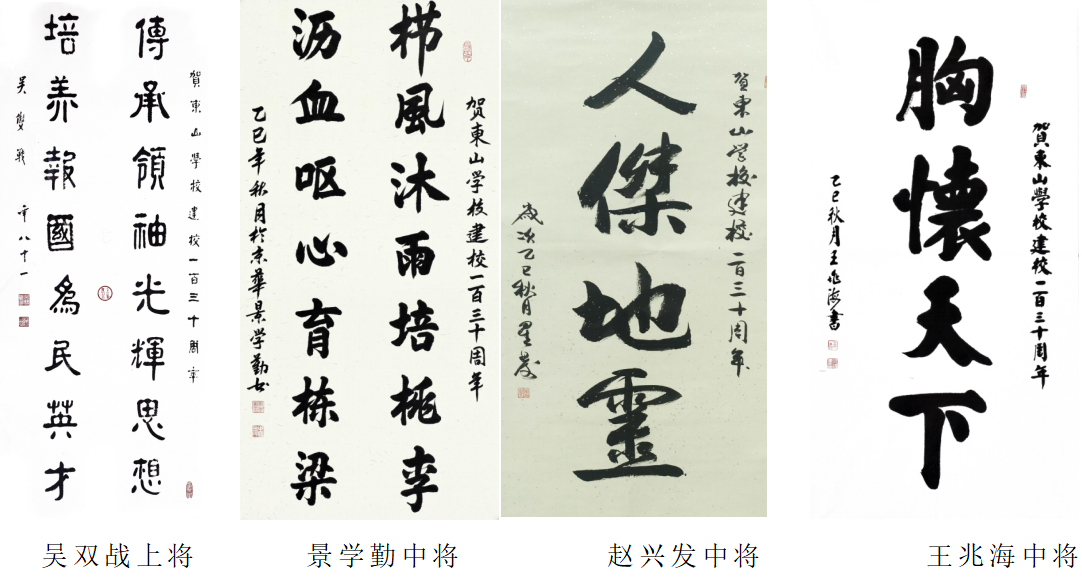 賀東山學校建校一百三十周年
傳承領袖光輝思想
培养報國為民英才
吴雙戰
八十一
贺東山学校建校一百三十周年
栉風沐雨培桃李
沥血呕心育栋梁
乙巳年秋月於京華景学勤书
贺東山学校建校一百三十周年
人傑地靈
歲次乙巳秋月
賀東山學校建校一百三十周年
胸懷天下
乙巳秋月王兆海書
吴双战上将
景学勤中将
赵兴发中将
王兆海中将